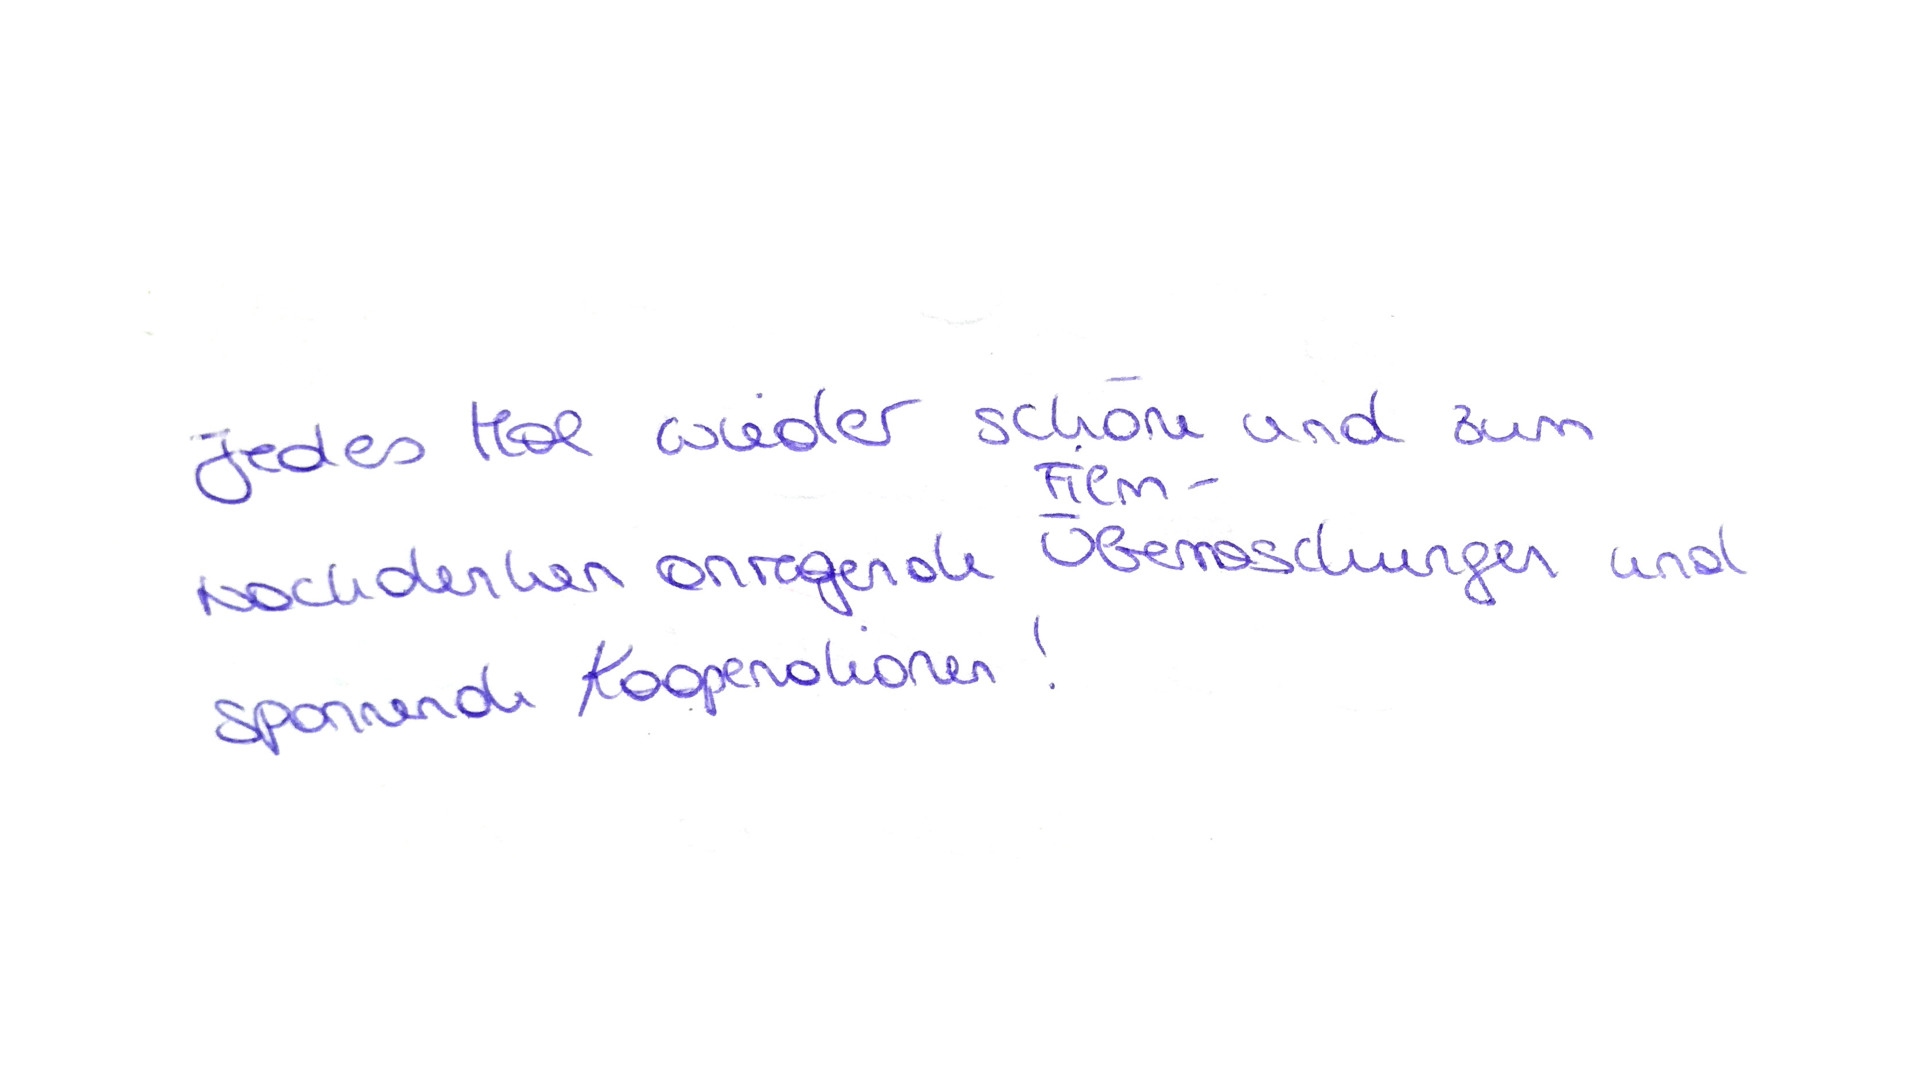 Jedes Mal wieder schöne und zum
Film-
Nachdenken anregende Überraschungen und
spannende Kooperationen!